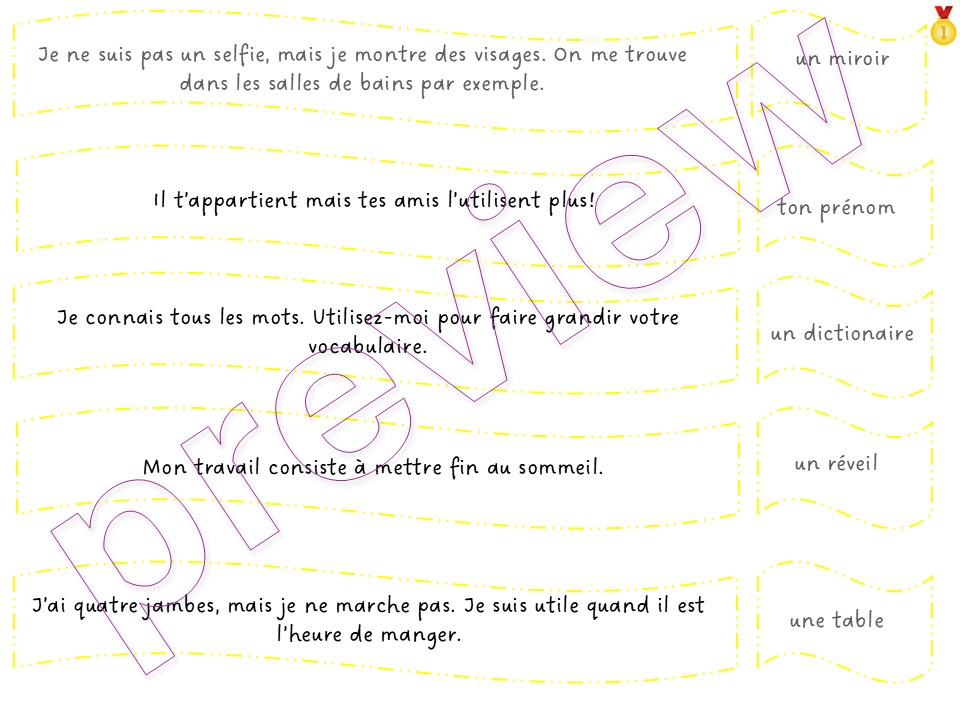 Je ne suis pas un selfie, mais je montre des visages. On me trouve
dans les salles de bains par exemple.
un miroir
1
Il t'appartient mais tes amis l'utilisent plus!
ton prénom
Je connais tous les mots. Utilisez-moi pour faire grandir votre
vocabulaire.
un dictionaire
Mon travail consiste à mettre fin au sommeil.
un réveil
J'ai quatre jambes, mais je ne marche pas. Je suis utile quand il est
l'heure de manger.
une table
preview